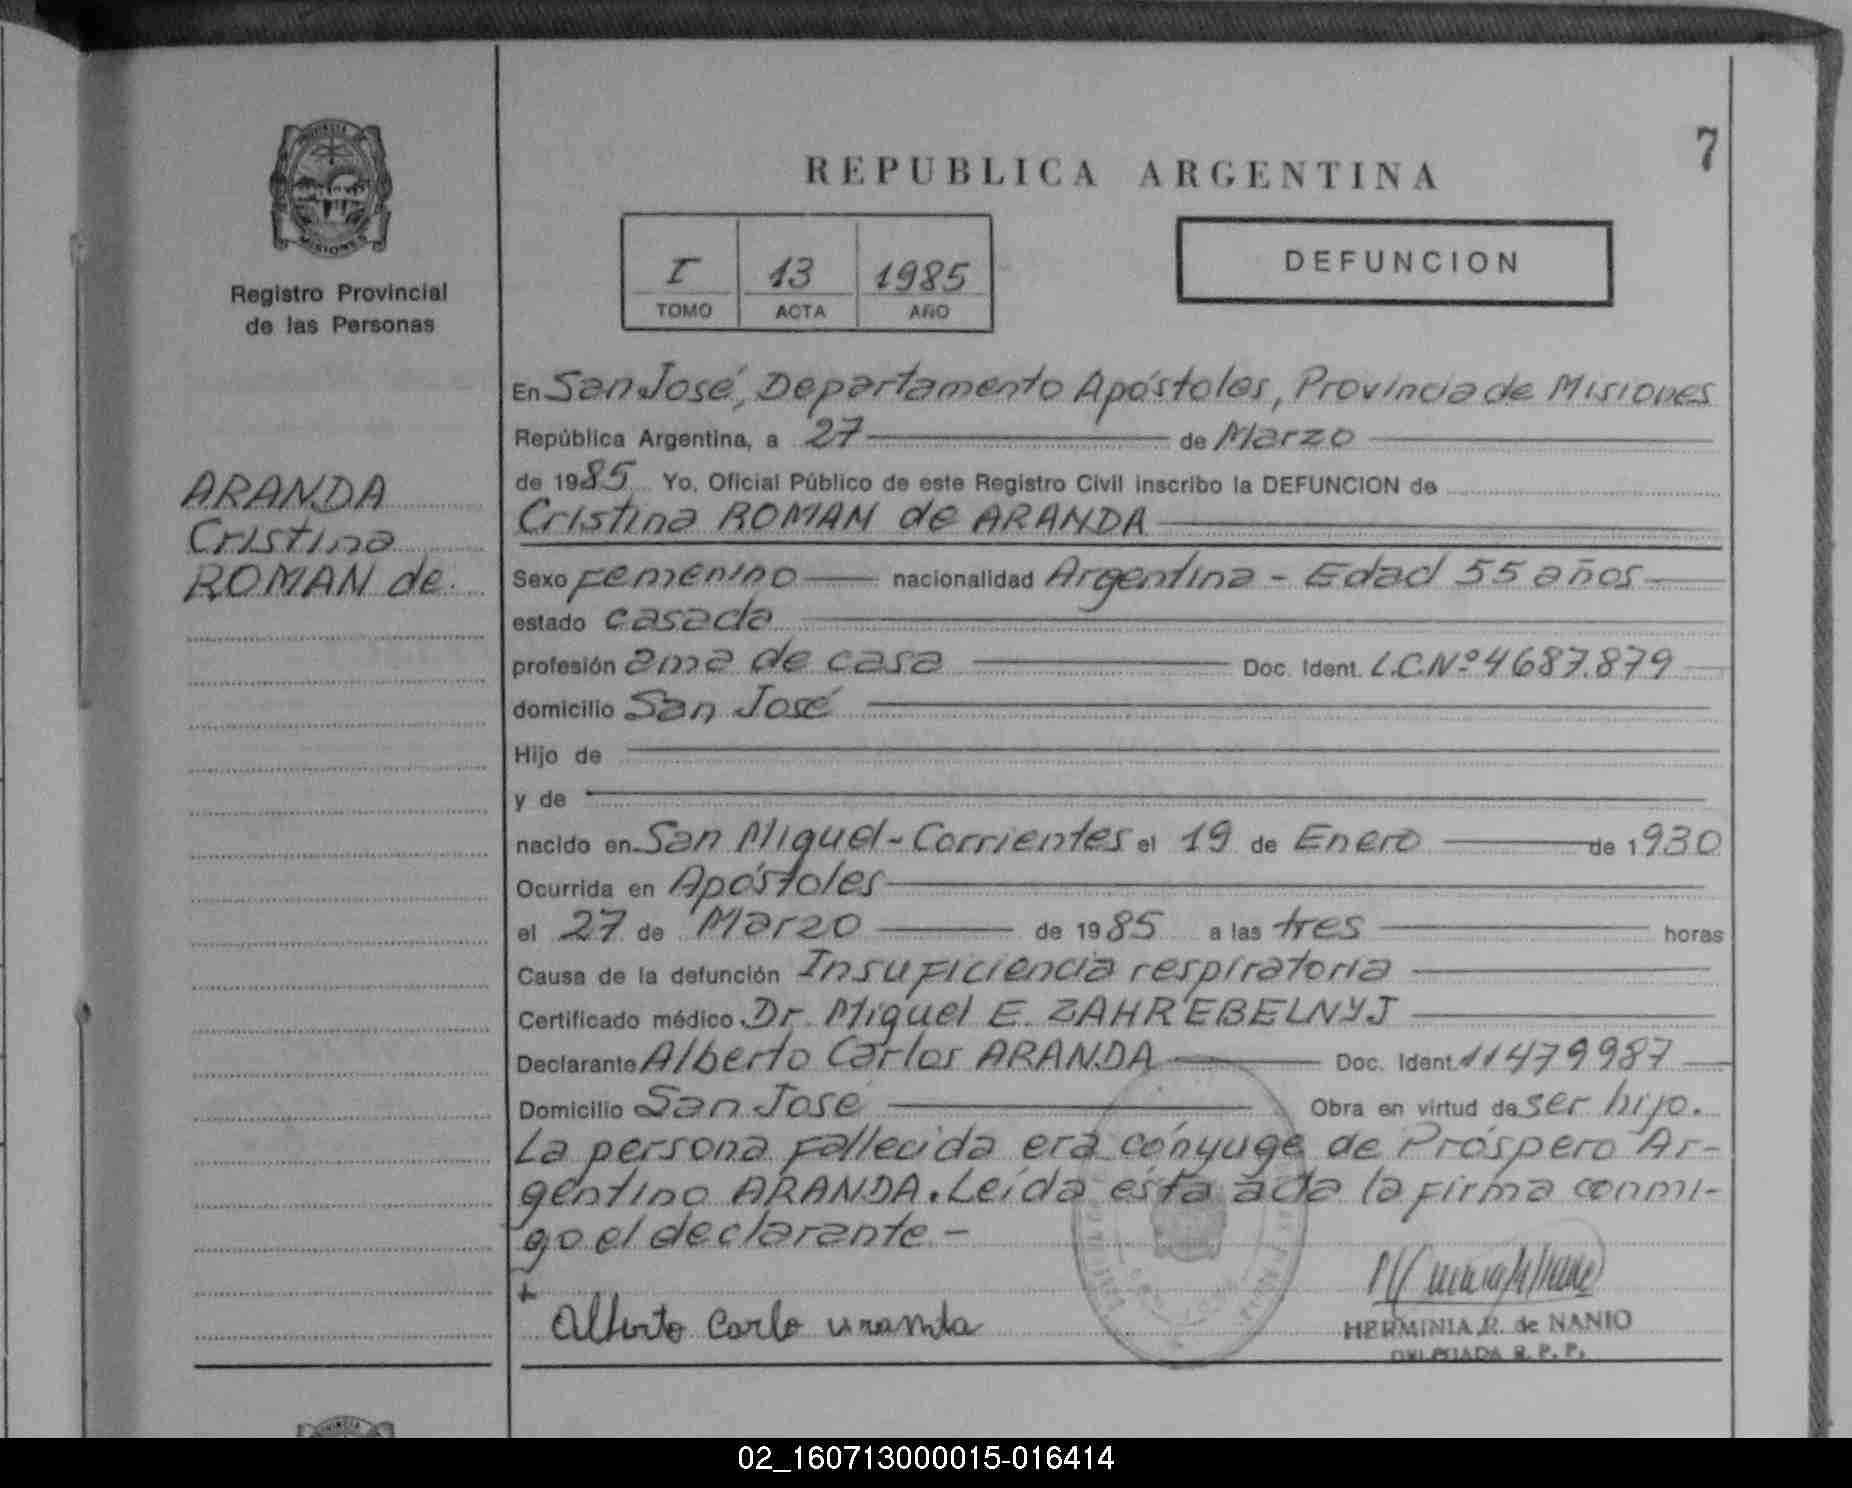 PROVINCIA DE
MISIONES
Registro Provincial
de las Personas
ARANDA
Cristina
ROMAN de
7
REPUBLICA ARGENTINA
I 13 1985
TOMO ACTA AÑO
DEFUNCION
En San José, Departamento Apóstoles, Provincia de Misiones
República Argentina, a 27 de Marzo
de 1985 Yo, Oficial Público de este Registro Civil inscribo la DEFUNCION de
Cristina ROMAN de ARANDA
Sexo femenino nacionalidad Argentina - Edad 55 años
estado casada
profesión ama de casa Doc. Ident. L.C.Nº 4687.879
domicilio San José
Hijo de
y de
nacido en San Miguel - Corrientes el 19 de Enero de 1930
Ocurrida en Apóstoles
el 27 de Marzo de 1985 a las tres horas
Causa de la defunción Insuficiencia respiratoria
Certificado médico Dr. Miguel E. ZAHREBELNYJ
Declarante Alberto Carlos ARANDA Doc. Ident. 11479987
Domicilio San José Obra en virtud de ser hijo.
La persona fallecida era cónyuge de Próspero Ar-
gentino ARANDA. Leída ésta acta la firma conmi-
go el declarante -
Alberto Carlo
HERMINIA R. de NANIO
DELEGADA R. P. P.
02_160713000015-016414